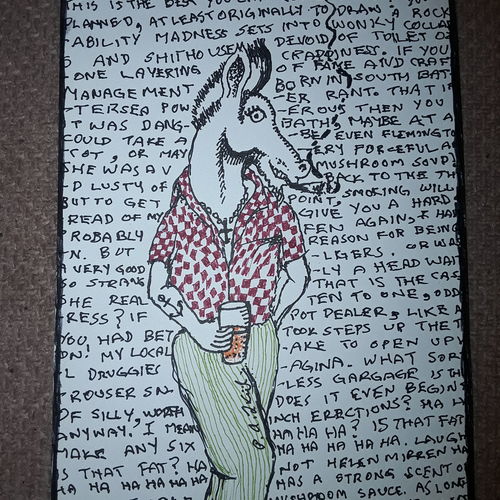 THIS IS THE BEST YOU
PLANNED, AT LEAST ORIGINALLY TO DRAW A ROCK
ABILITY MADNESS SETS INTO WONKY COLLA
S AND SHITHOUSE DEVOID OF TOILET
ONE LAYERING OF CRADDINESS. IF YOU
MANAGEMENT OF FAME AND CRAF
-TERSEA POW BORN IN SOUTH BAT-
T WAS DANG- -ER RANT. THAT IF
COULD TAKE A -EROUS THEN YOU
COT, OR MAY BATH, MAYBE AT
HE WAS A V -BE EVEN FLEMINGTO
D LUSTY OF TERY FORCEFUL A
BUT TO GET MUSHROOM SOUP
READ OF MY BACK TO THE TH
ROBABLY POINT, SMOKING WILL
N. BUT GIVE YOU A HARD
A VERY GOOD FEN AGAIN, & HA
SO STRANG REASON FOR BEING
HE REAL -LKERS. OR WA
RESS? IF -LY A HEAD WAY
YOU HAD BET THAT IS THE CAS
ON! MY LOCAL TEN TO ONE, ODD
L DRUGGIES POT DEALER, LIKE A
-ROUSER SN TOOK STEPS UP THE T
OF SILLY, WORTH -AKE TO OPEN UP V
ANYWAY. I MEAN -AGINA. WHAT SOR
MAKE ANY SIX -LESS GARGAGE IS TH
IS THAT FAT? HA DOES IT EVEN BEGIN
HA HA HA HA HA INCH ERECTIONS? HA H
HA HA HA? IS THAT FAT
HA HA HA HA HA. LAUGH
NOT HELEN MIRREN HA
HAS A STRONG SCENT O
MUSHROOM SAUCE. AS LON